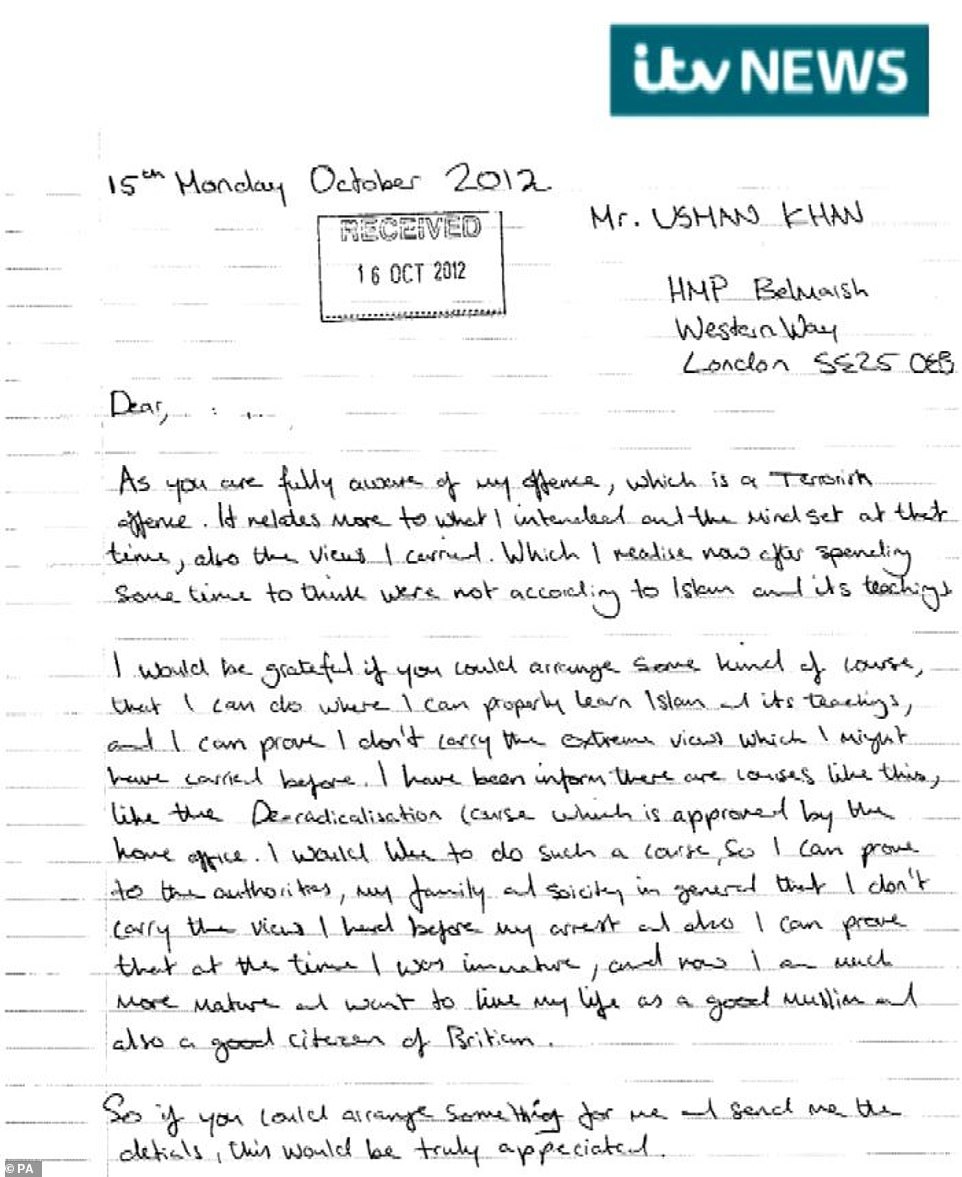 itv NEWS
15th Monday October 2012
RECEIVED
16 OCT 2012
Mr. USMAN KHAN
HMP Belmarsh
Western Way
London SE25 0EB
Dear,
As you are fully aware of my offence, which is a Terrorist
offence. It relates more to what I intended and the mind set at that
time, also the views I carried. Which I realise now after spending
some time to think were not according to Islam and its teachings
I would be grateful if you could arrange some kind of course,
that I can do where I can properly learn Islam and its teachings,
and I can prove I don't carry the extreme views which I might
have carried before. I have been inform there are courses like this,
like the De-radicalisation course which is approved by the
home office. I would like to do such a course, so I can prove
to the authorities, my family and soicity in general that I don't
carry the views I had before my arrest and also I can prove
that at the time I was immature, and now I am much
more mature and want to live my life as a good muslim and
also a good citezen of Britian.
So if you could arrange something for me and send me the
detials, this would be truly appeciated.
© PA